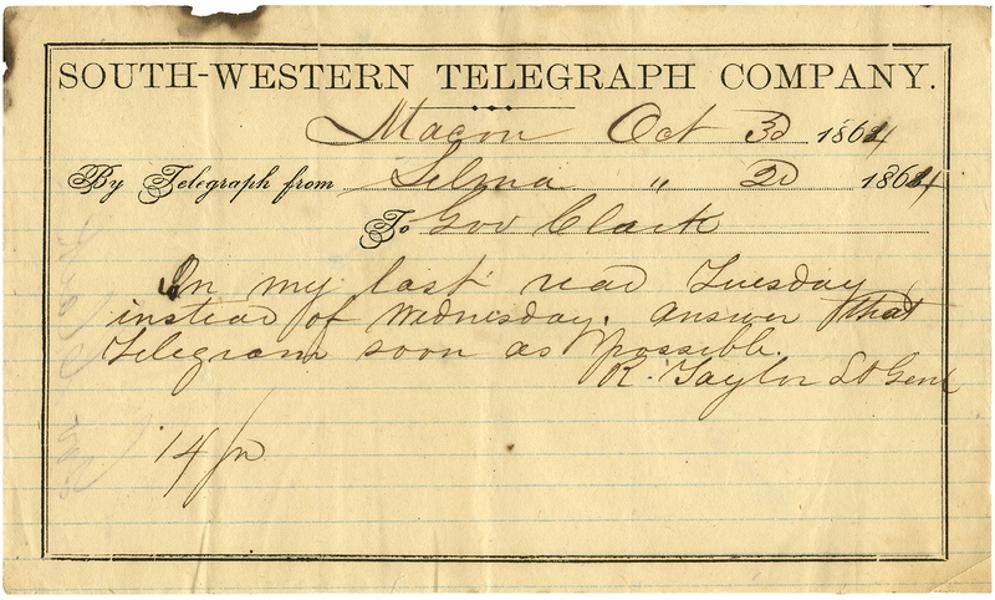 SOUTH-WESTERN TELEGRAPH COMPANY.
Macon Oct 3d 1864
By Telegraph from Selma " 2d 1864
To Gov Clark
In my last read Tuesday
instead of Wednesday. answer that
Telegram soon as possible.
R. Taylor Lt Genl
14